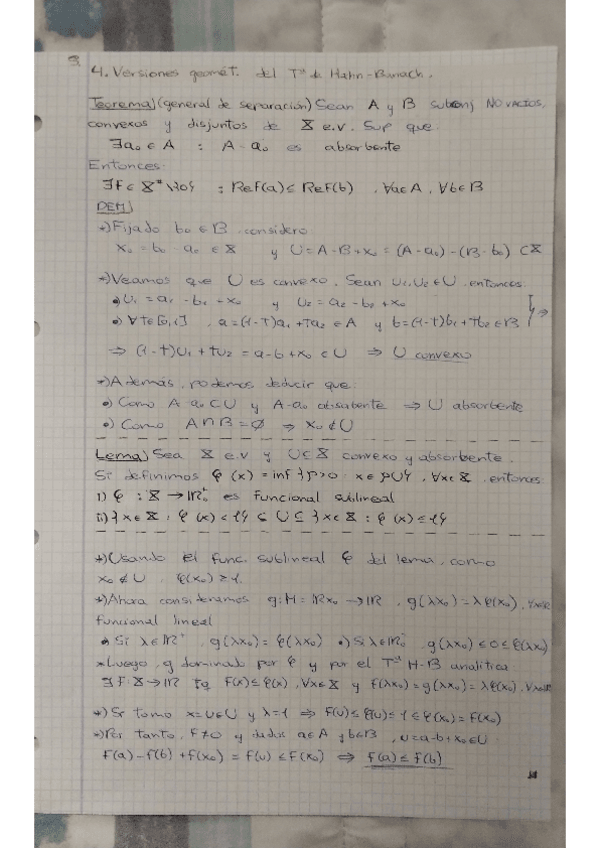 4. Versiones geomét. del Tª de Hahn-Banach.
Teorema) (general de separación) Sean A y B subconj NO VACÍOS,
convexos y disjuntos de X e.v. Sup que
∃a₀ ∈ A : A - a₀ es absorbente
Entonces:
∃F ∈ X* \ {0} : Re F(a) ≤ Re F(b), ∀a∈A, ∀b∈B
DEM)
*) Fijado b₀ ∈ B, considero:
x₀ = b₀ - a₀ ∈ X y U = A - B + x₀ = (A - a₀) - (B - b₀) ⊂ X
*) Veamos que U es convexo. Sean u₁, u₂ ∈ U, entonces:
•) u₁ = a₁ - b₁ + x₀ y u₂ = a₂ - b₂ + x₀
•) ∀t∈[0,1], a = (1-t)a₁ + ta₂ ∈ A y b = (1-t)b₁ + tb₂ ∈ B } ⇒
⇒ (1-t)u₁ + tu₂ = a - b + x₀ ∈ U ⇒ U convexo
*) Además, podemos deducir que:
•) Como A - a₀ ⊂ U y A - a₀ absorbente ⇒ U absorbente
•) Como A ∩ B = ∅ ⇒ x₀ ∉ U
Lema) Sea X e.v y U ⊂ X convexo y absorbente.
Si definimos φ(x) = inf {ρ>0 : x ∈ ρU}, ∀x∈X, entonces:
i) φ : X → ℝ₀⁺ es funcional sublineal
ii) {x ∈ X : φ(x) < 1} ⊆ U ⊆ {x ∈ X : φ(x) ≤ 1}
*) Usando el func. sublineal φ del lema, como
x₀ ∉ U, φ(x₀) ≥ 1.
*) Ahora consideramos g: M = ℝx₀ → ℝ, g(λx₀) = λφ(x₀),
funcional lineal
•) Si λ∈ℝ⁺, g(λx₀) = φ(λx₀) •) Si λ∈ℝ₀⁻, g(λx₀) ≤ 0 ≤ φ(λx₀)
*) Luego, g dominado por φ y por el Tª H-B analítica
∃ f: X → ℝ tq f(x) ≤ φ(x), ∀x∈X y f(λx₀) = g(λx₀) = λφ(x₀),
*) Si tomo x = u ∈ U y λ = 1 ⇒ f(u) ≤ φ(u) ≤ 1 ≤ φ(x₀) = f(x₀)
*) Por tanto, f ≠ 0 y dados a∈A y b∈B, u = a - b + x₀ ∈ U
f(a) - f(b) + f(x₀) = f(u) ≤ f(x₀) ⇒ f(a) ≤ f(b)